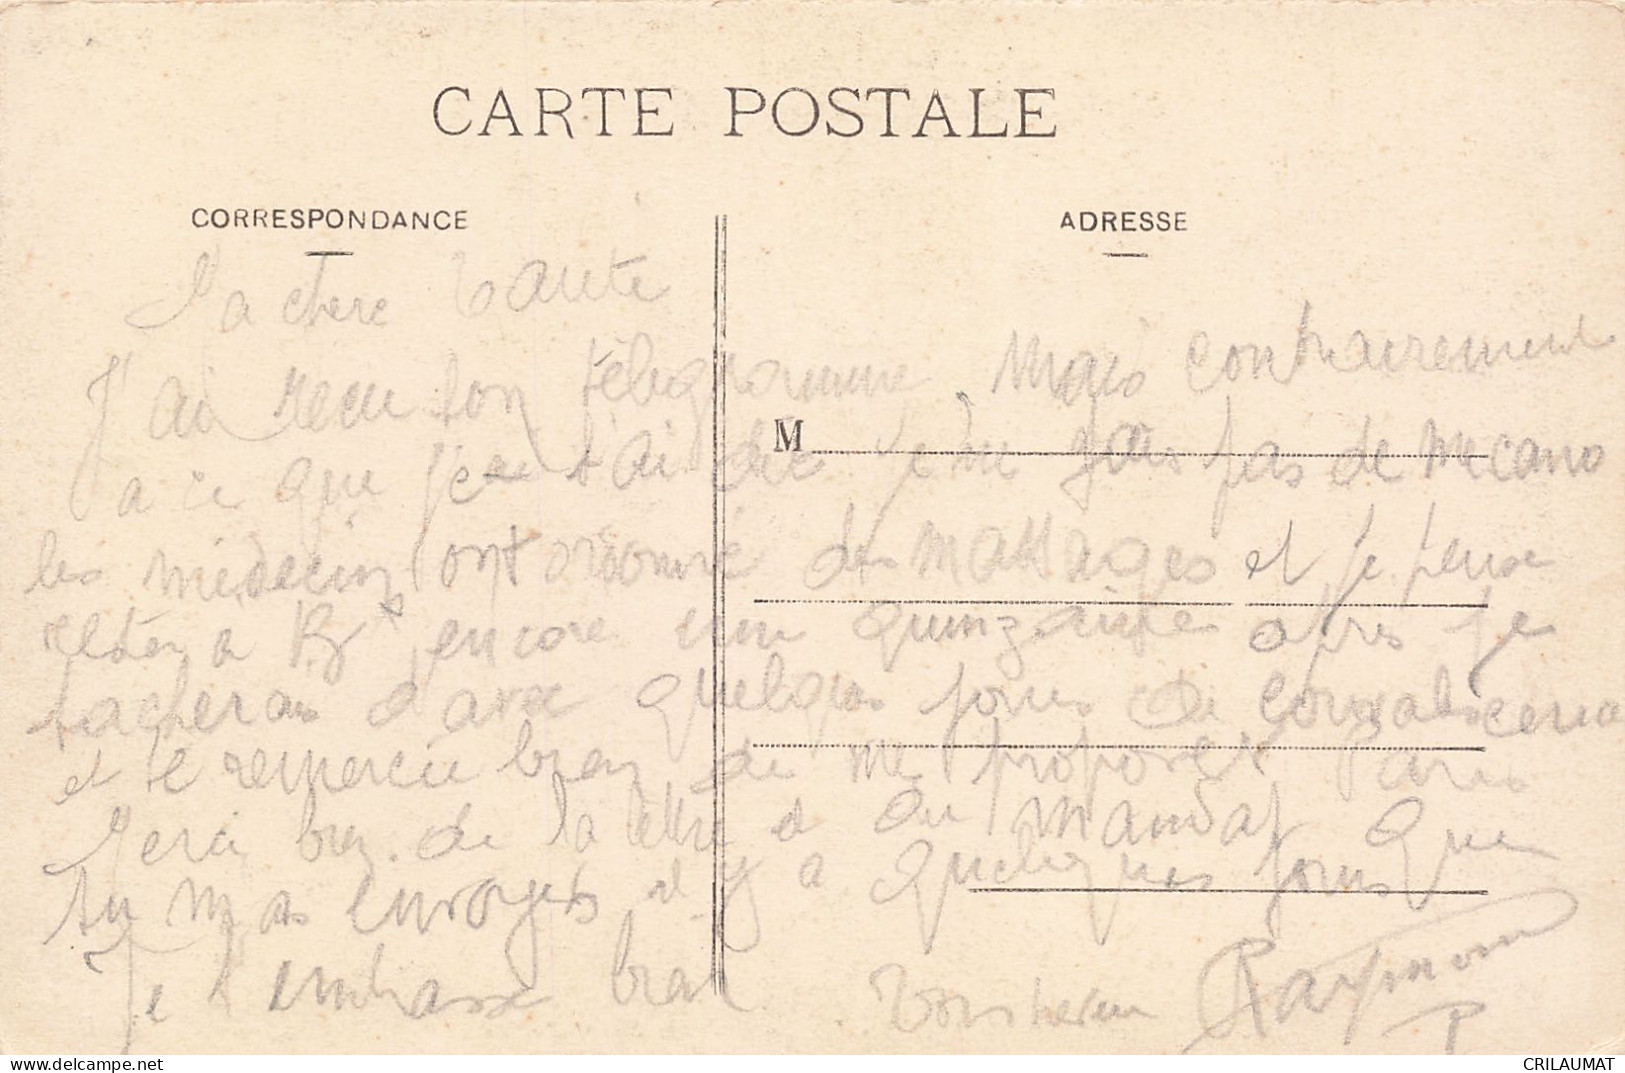 CARTE POSTALE
CORRESPONDANCE
ADRESSE
M
Ma chere Tante
J'ai recu ton télégramme, Mais contrairement
a ce que je t'ai dit je ne fais pas de mecano
les médecins ont ordonné des massages et je pense
rester a encore une quinzaine apres je
tacherais d'avoir quelques jours de convalescence
et te remercie bien de me proposer Paris
Merci bien de la lettre et du mandat que
tu mas envoyés il y a quelques jours
Je t'embrasse bien Ton Raymond
delcampe.net
CRILAUMAT